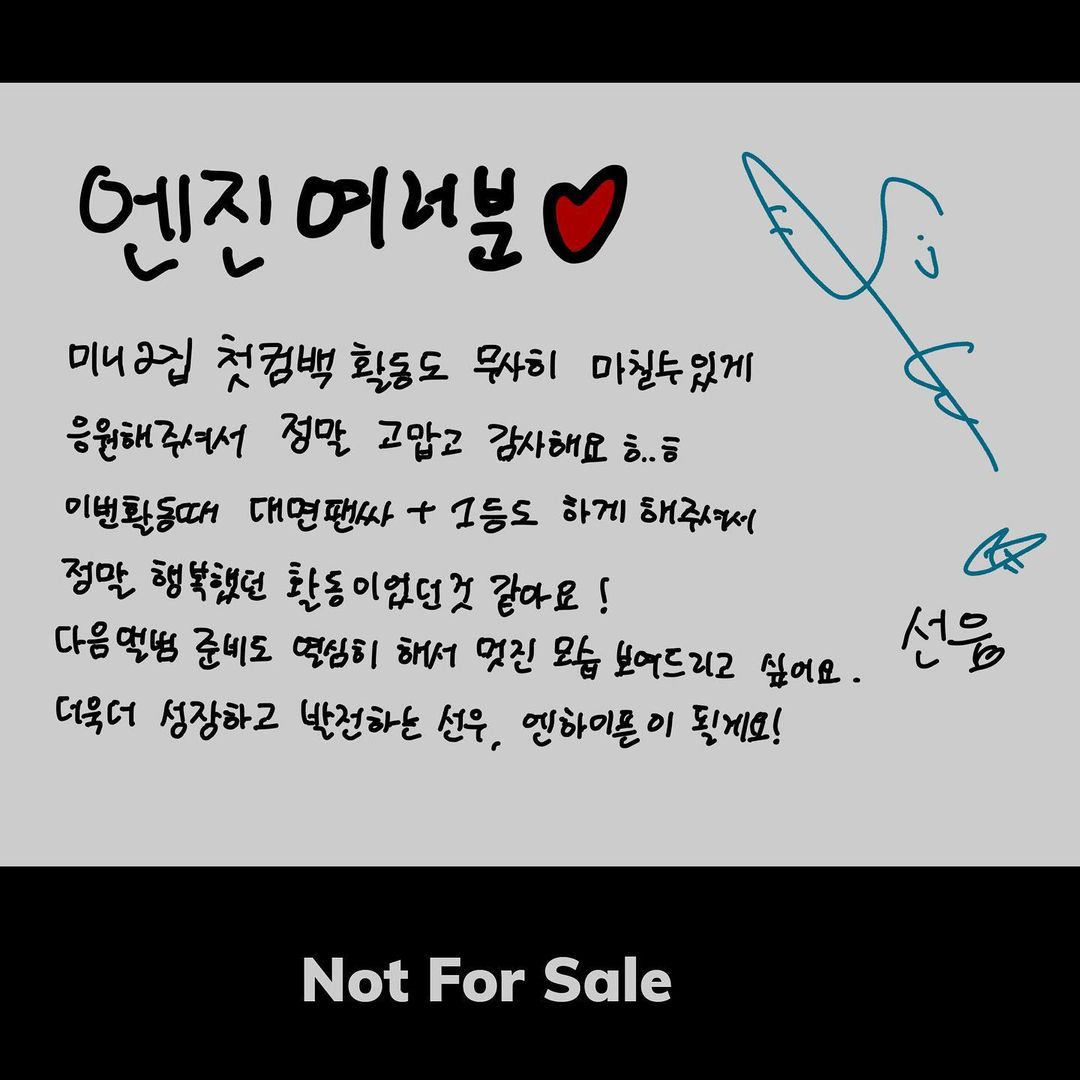 엔진 여러분
미니 2집 첫컴백 활동도 무사히 마칠수있게
응원해주셔서 정말 고맙고 감사해요 ㅎ..ㅎ
이번활동때 대면팬싸 + 1등도 하게 해주셔서
정말 행복했던 활동이었던것 같아요!
다음앨범 준비도 열심히 해서 멋진 모습 보여드리고 싶어요.
더욱더 성장하고 발전하는 선우, 엔하이픈이 될게요!
Not For Sale